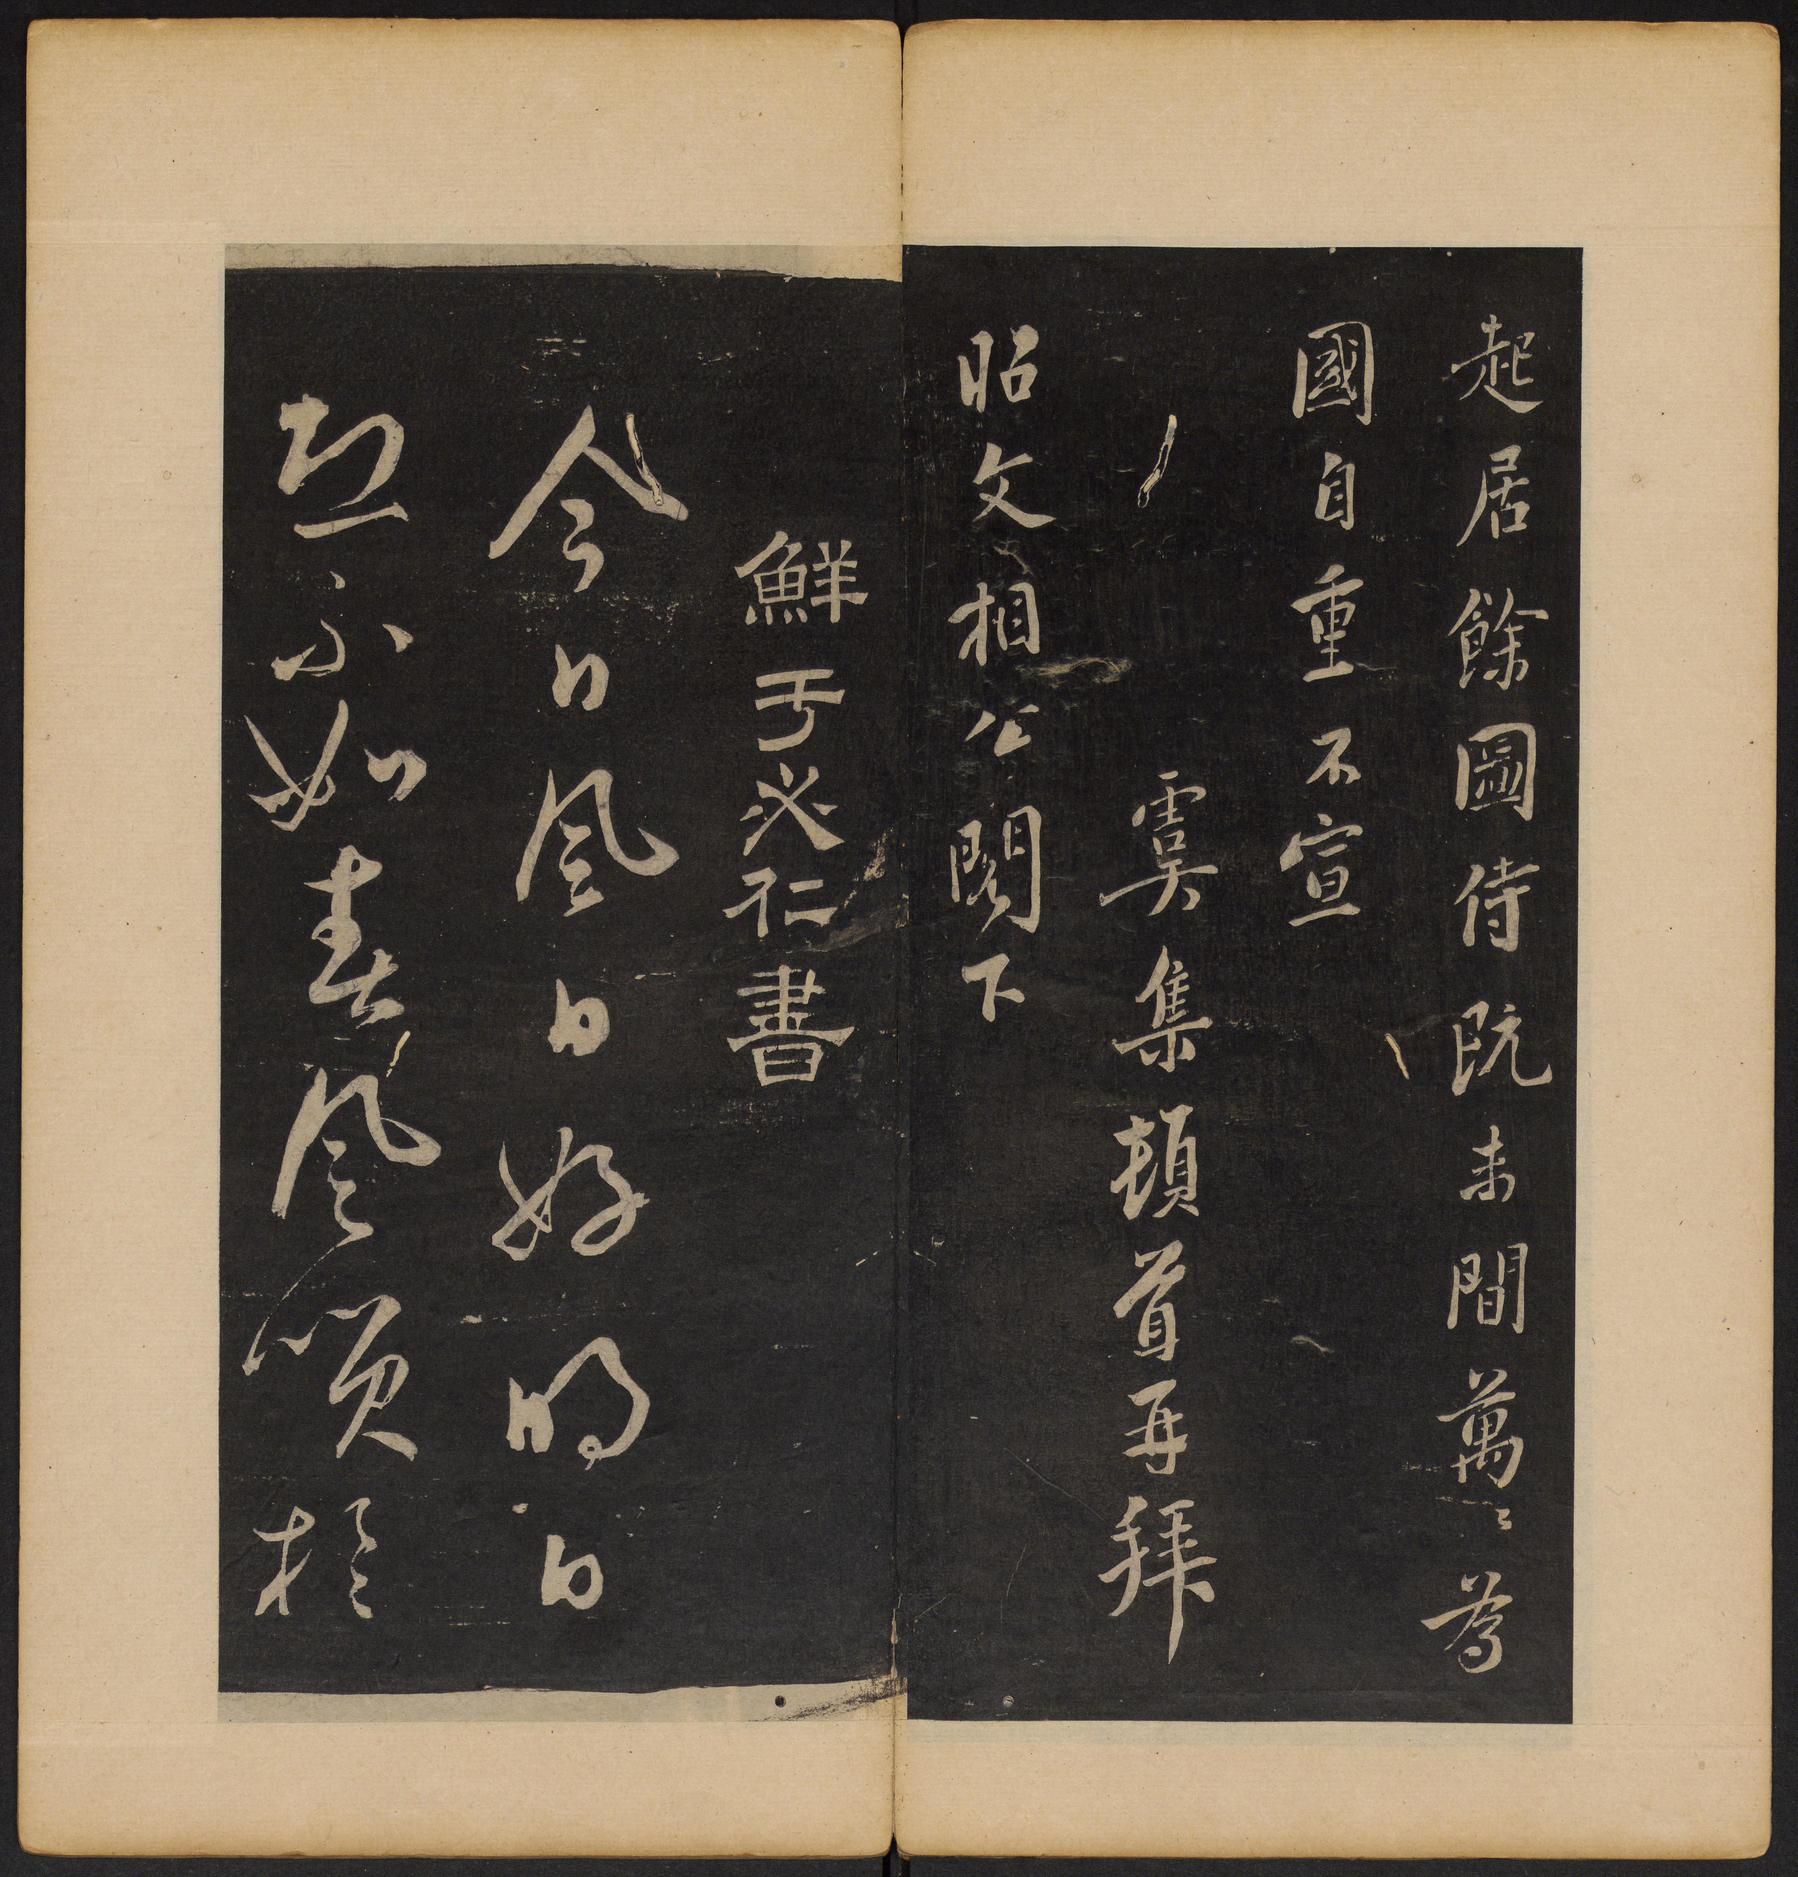 起居餘圖侍未間萬〻為
國自重不宣
虞集頓首再拜
昭文相公閣下
鮮于必仁書
今日風日好明日
恐不如春風笑於